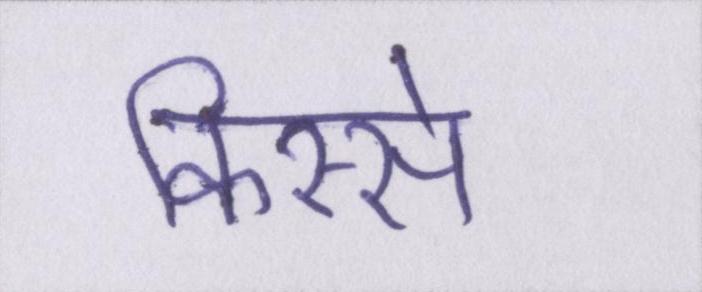 किस्से